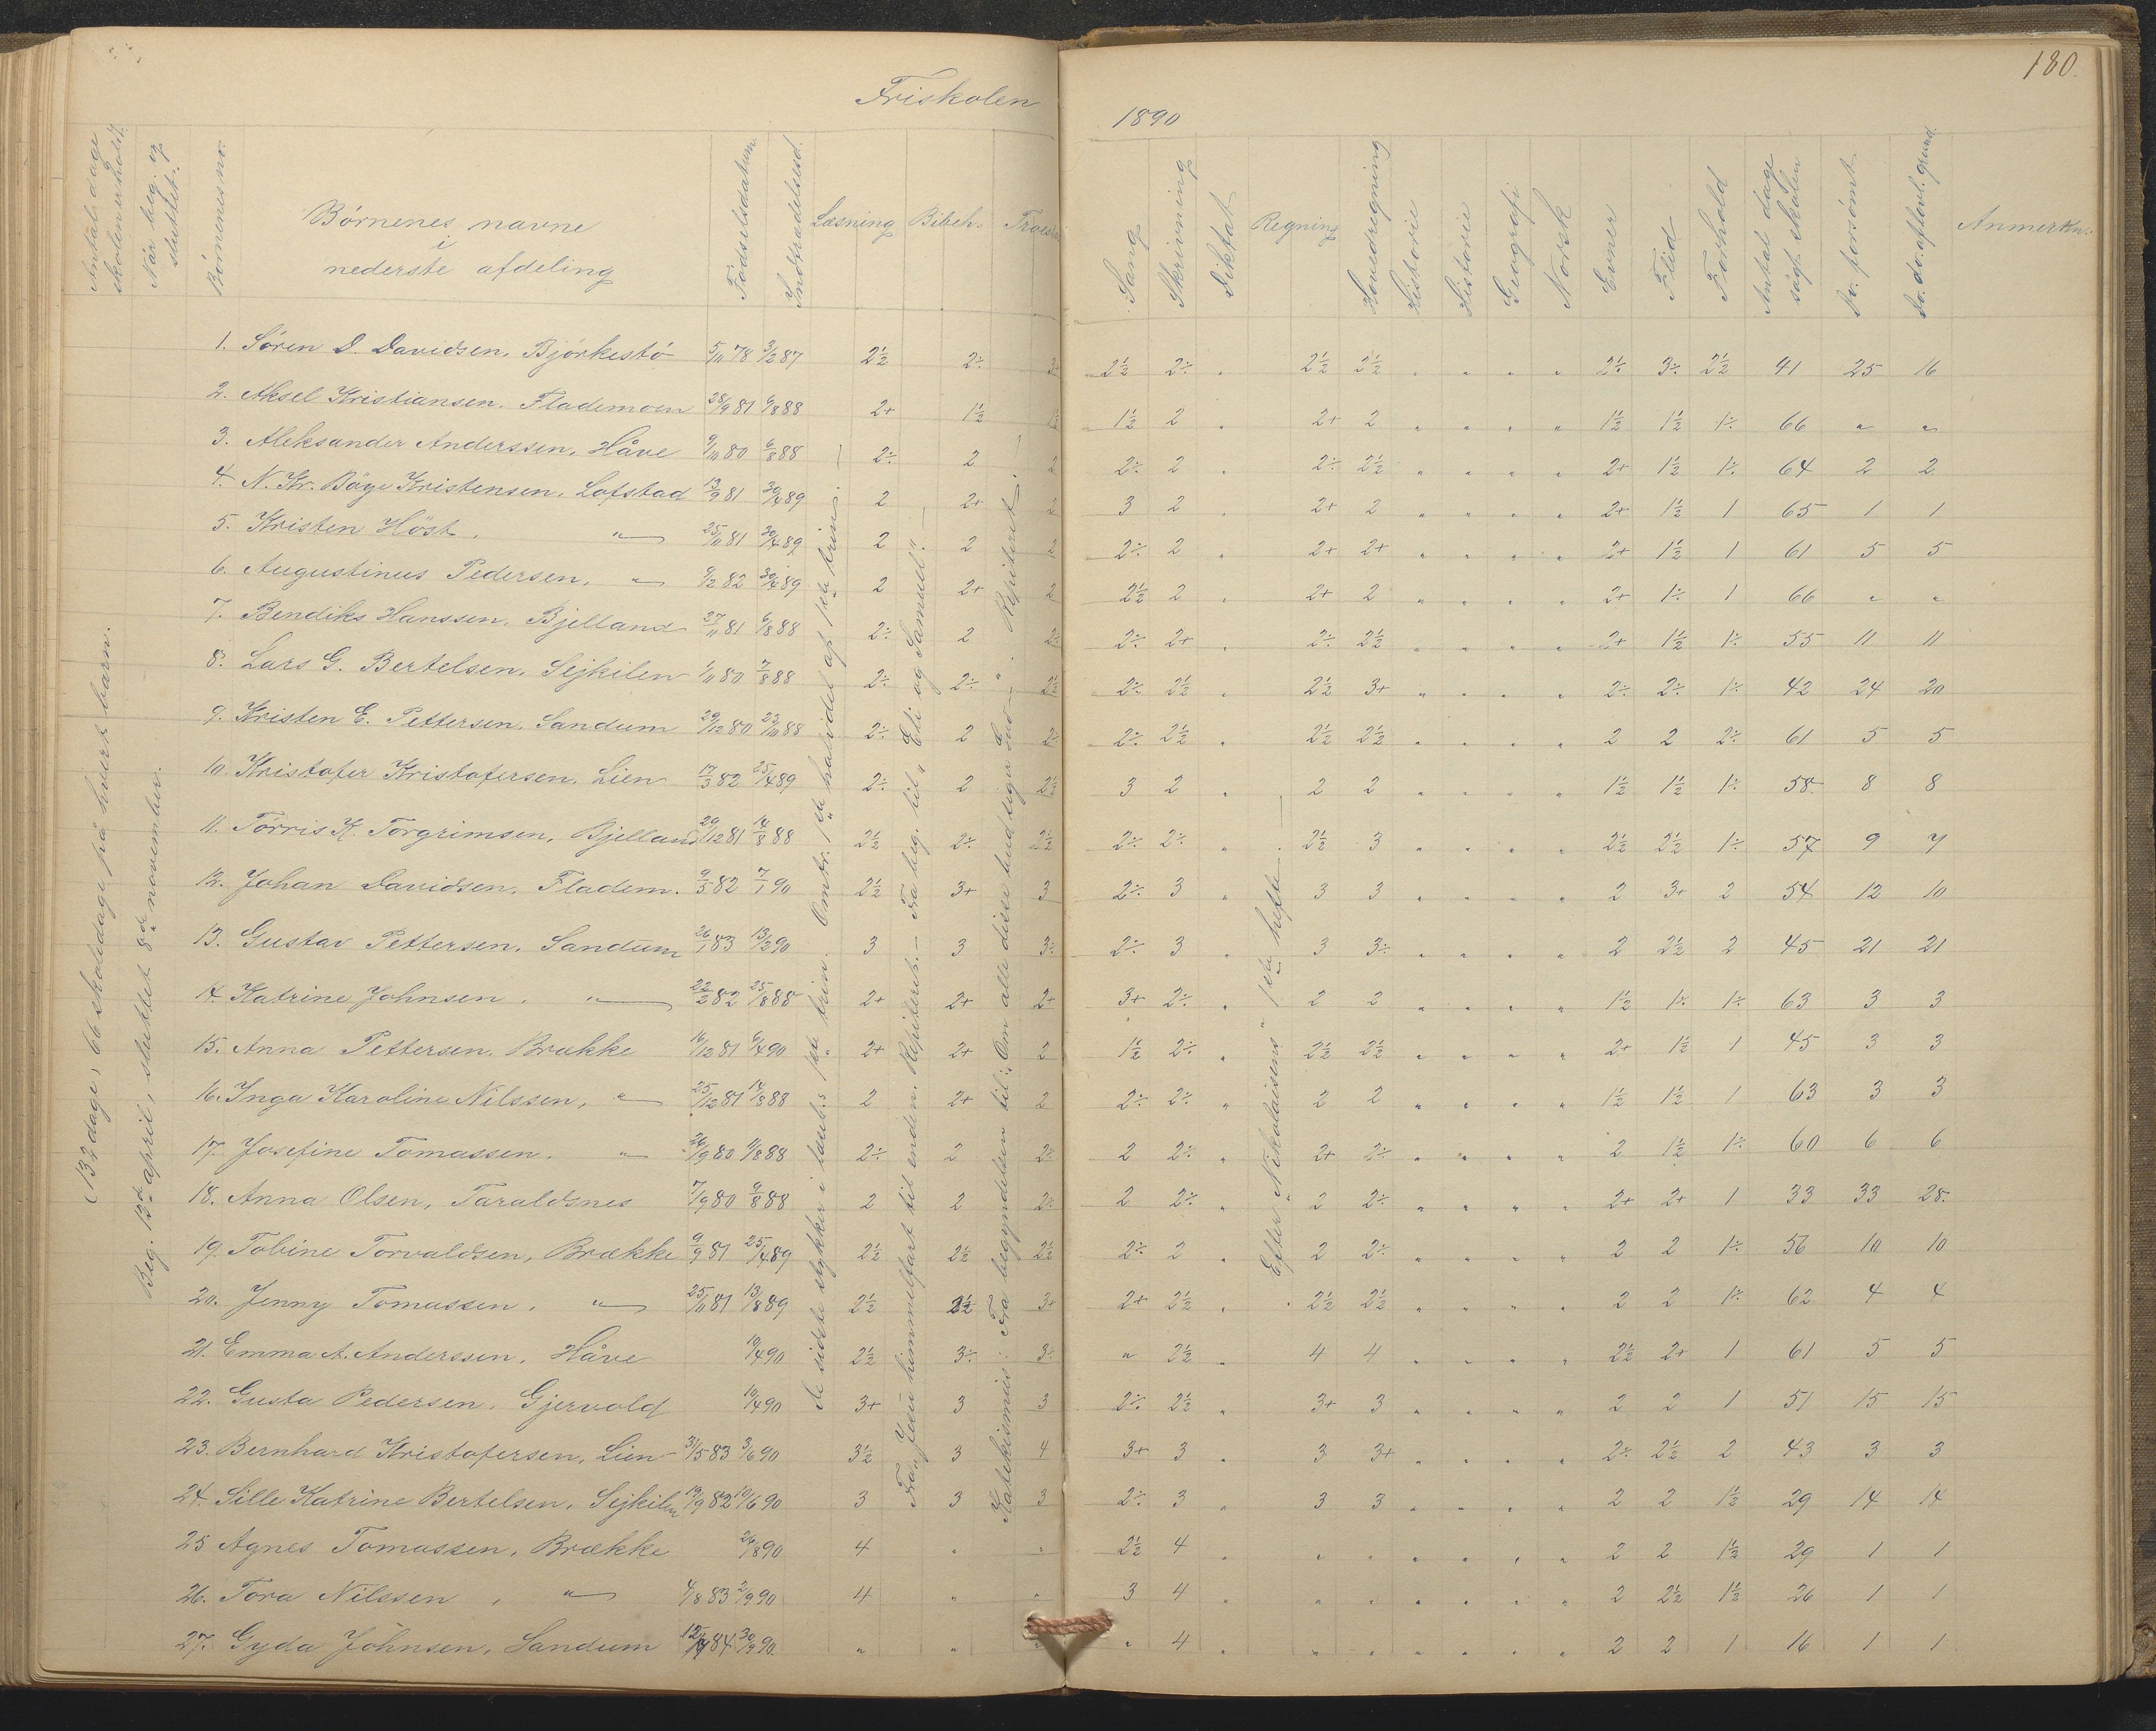 180.
Friskolen
1890
Antal dage skolen er holdt.
Når beg. og sluttet.
Börnenes nr.
Börnenes navne i nederste afdeling
Födselsdatum
Indtrædelsesd.
Læsning
Bibelh.
Troes
Sang
Skrivning
Diktat
Regning
Hovedregning
Historie
Historie
Geografi
Norsk
Evner
Flid
Forhold
Antal dage sögt skolen
Do. forsömt
Do. do. af lovl. grund.
Anmerkn.
(132 dage, 66 skoledage på hvert barn.
Beg. 13de april, sluttet 8de november.
De sidste stykker i læseb.s 1ste trin. Omtr. 1ste halvdel af 2det trin.
Fra „Jesu himmelfart“ til enden. Repiteret. — Fra beg. til „Eli og Samuel“.
Katekismus: Fra begyndelsen til: „Om alle disse ting
Repiteret.
Efter „Nikolaisens“ 1ste hefte
1. Sören D. Davidsen, Björkestö 5/11 78 3/2 87 2½ 2÷ 3+ 2½ 2÷ „ 2½ 2½ „ „ „ „ 2÷ 3÷ 2½ 41 25 16
2. Aksel Kristiansen, Flademoen 28/9 81 6/8 88 2+ 1½ 1½ 1½ 2 „ 2+ 2 „ „ „ „ 1½ 1½ 1÷ 66 „ „
3. Aleksander Anderssen, Håve 9/10 80 6/8 88 2÷ 2 2 2÷ 2 „ 2÷ 2½ „ „ „ „ 2+ 1½ 1÷ 64 2 2
4. N. Kr. Böge Kristensen, Lofstad 13/9 81 30/4 89 2 2+ 2 3 2 „ 2+ 2 „ „ „ „ 2+ 1½ 1 65 1 1
5. Kristen Höst, „ 25/11 81 30/4 89 2 2 2 2÷ 2 „ 2+ 2+ „ „ „ „ 2+ 1½ 1 61 5 5
6. Augustinus Pedersen, „ 9/12 82 30/4 89 2 2+ 2 2½ 2 „ 2+ 2 „ „ „ „ 2+ 1÷ 1 66 „ „
7. Bendiks Hanssen, Bjelland 27/11 81 6/8 88 2÷ 2 2÷ 2÷ 2+ „ 2÷ 2½ „ „ „ „ 2+ 1½ 1÷ 55 11 11
8. Lars G. Bertelsen, Sejkilen 1/11 80 7/8 88 2÷ 2÷ 2½ 2÷ 2½ „ 2½ 3+ „ „ „ „ 2÷ 2÷ 1÷ 42 24 20
9. Kristen E. Pettersen, Sandum 29/12 80 23/10 88 2÷ 2 2÷ 2÷ 2½ „ 2½ 2½ „ „ „ „ 2 2 2÷ 61 5 5
10. Kristofer Kristofersen, Lien 17/3 82 25/4 89 2÷ 2 2½ 3 2 „ 2 2 „ „ „ „ 1½ 1½ 1÷ 58 8 8
11. Törris K. Torgrimsen, Bjelland 29/12 81 14/8 88 2½ 2÷ 2½ 2÷ 2÷ „ 2½ 3 „ „ „ „ 2½ 2½ 1÷ 57 9 7
12. Johan Davidsen, Fladem. 9/5 82 7/1 90 2½ 3+ 3 2÷ 3 „ 3 3 „ „ „ „ 2 3+ 2 54 12 10
13. Gustav Pettersen, Sandum 26/1 83 13/2 90 3 3 3÷ 2÷ 3 „ 3 3÷ „ „ „ „ 2 2½ 2 45 21 21
14. Katrine Johnsen, „ 22/2 82 25/8 88 2+ 2+ 2+ 3+ 2÷ „ 2 2 „ „ „ „ 1½ 1÷ 1÷ 63 3 3
15. Anna Pettersen, Brække 16/12 81 9/4 90 2+ 2+ 2 1½ 2÷ „ 2½ 2½ „ „ „ „ 2+ 1½ 1 45 3 3
16. Inga Karoline Nilssen, „ 25/12 81 14/8 88 2 2+ 2 2÷ 2÷ „ 2 2 „ „ „ „ 1½ 1½ 1 63 3 3
17. Josefine Tomassen, „ 26/9 80 11/8 88 2÷ 2 2÷ 2 2÷ „ 2+ 2÷ „ „ „ „ 2 1½ 1÷ 60 6 6
18. Anna Olsen, Taraldsnes 7/9 80 9/8 88 2 2 2÷ 2 2÷ „ 2 2÷ „ „ „ „ 2+ 2+ 1 33 33 28.
19. Tobine Torvaldsen, Brække 9/9 81 25/4 89 2½ 2½ 2½ 2÷ 2 „ 2 2÷ „ „ „ „ 2 2 1÷ 56 10 10
20. Jenny Tomassen, „ 25/11 81 13/8 89 2½ 2½ 3+ 2+ 2½ „ 2½ 2½ „ „ „ „ 2 2 1÷ 62 4 4
21. Emma A. Anderssen, Håve 10/4 90 2½ 3÷ 3÷ „ 2½ „ 4 4 „ „ „ „ 2½ 2+ 1 61 5 5
22. Gusta Pedersen, Gjervold 10/4 90 3+ 3 3 2÷ 2½ „ 3+ 3 „ „ „ „ 2 2 1 51 15 15
23. Bernhard Kristofersen, Lien 31/5 83 3/6 90 3½ 3 4 3+ 3 „ 3 3+ „ „ „ „ 2÷ 2½ 2 43 3 3
24. Sille Katrine Bertelsen, Sejkilen 19/9 82 10/6 90 3 3 3 2÷ 3 „ 3 3 „ „ „ „ 2 2 1½ 29 14 14
25 Agnes Tomassen, Brække 26/8 90 4 „ „ 2½ 4 „ „ „ „ „ „ „ 2 2 1½ 29 1 1
26. Tora Nilssen, „ 4/8 83 2/9 90 4 „ „ 3 4 „ „ „ „ „ „ „ 2 2½ 1½ 26 1 1
27. Gyda Johnsen, Sandum 84 30/9 90. „ „ „ „ 4 „ „ „ „ „ „ „ 2 2 1 16 1 1